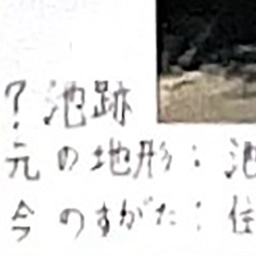 ？池跡
元の地形：池
今のすがた：住